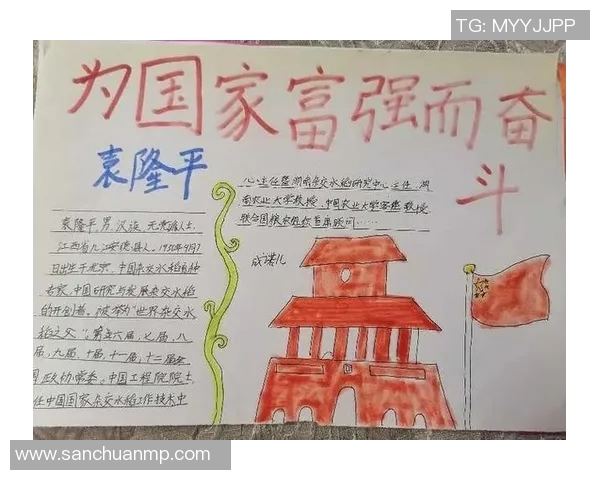 TG: MYYJJPP
为国家富强而奋
斗
袁隆平
袁隆平，男，汉族，无党派人士，
江西省九江安德县人。1930年9月7
日出生于北京，中国杂交水稻育种
专家，中国研究与发展杂交水稻
的开创者。被誉为“世界杂交水
稻之父”。第五六届，七届，八
届，九届，十届，十一届，十二届全
国政协常委。中国工程院院士，
任中国国家杂交水稻工作技术中
心主任暨湖南杂交水稻研究中心主任，湖
南农业大学教授，中国农业大学客座教授，
联合国粮农组织首席顾问……
成诺儿
www.sanchuanmp.com